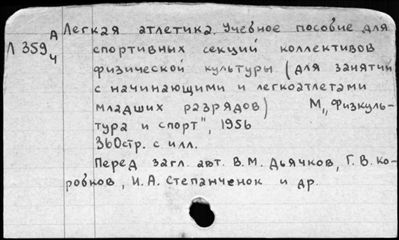 А Легкая атлетика. Учебное пособие для
Л 359 спортивных секций коллективов
Ч физической культуры (для занятий
с начинающими и легкоатлетами
младших разрядов) М, „Физкуль-
тура и спорт", 1956
360стр. с илл.
Перед загл. авт. В.М. Дьячков, Г.В. Ко-
ровков, И.А. Степанченок и др.